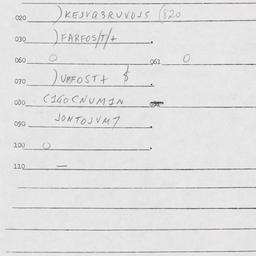 020 )KEJVQ3RUVOJS (§20
030 )FARFOS/T/+ .
060 O 061 O
070 )UPFOST+ $ .
080 C1GOCNUM1N
090 JONTOJVM7 .
100 O .
110 —